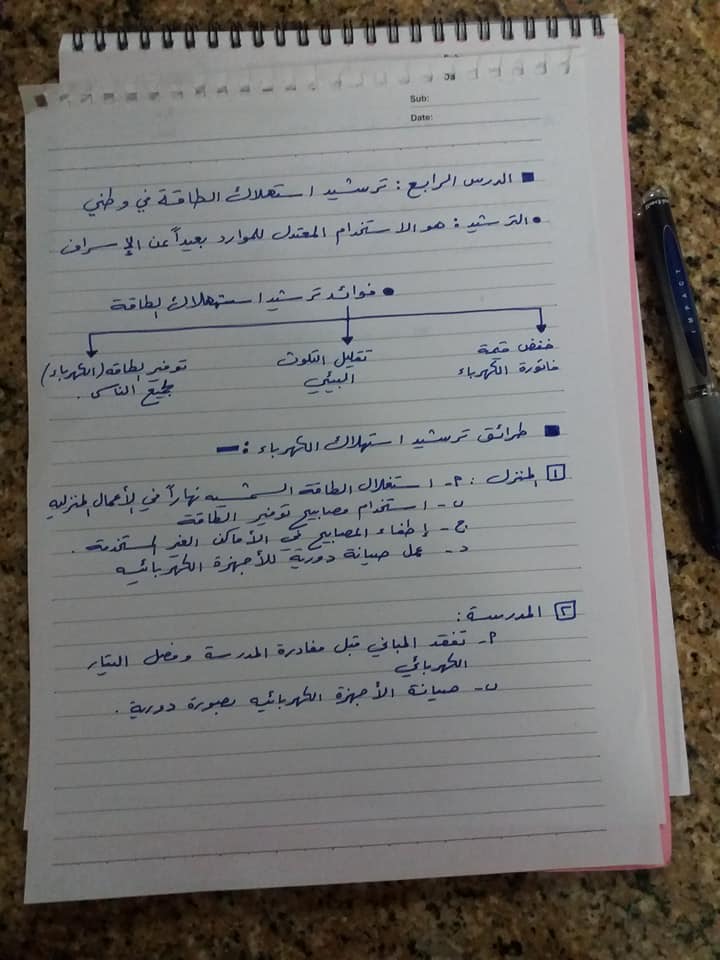 Sub:
Date:
■ الدرس الرابع : ترشيد استهلاك الطاقة في وطني
• الترشيد : هو الاستخدام المعتدل للموارد بعيداً عن الإسراف
• فوائد ترشيد استهلاك الطاقة
خفض قيمة فاتورة الكهرباء
تقليل التلوث البيئي
توفير الطاقة (الكهرباء) لجميع الناس .
■ طرائق ترشيد استهلاك الكهرباء :-
١ المنزل : أ- استغلال الطاقة الشمسيه نهاراً في الأعمال المنزليه
ب- استخدام مصابيح توفير الطاقة
ج- إطفاء المصابيح في الأماكن الغير المستخدمة .
د- عمل صيانة دورية للأجهزة الكهربائيه
٢ المدرسة :
أ- تفقد المباني قبل مغادرة المدرسة وفصل التيار
الكهربائي
ب- صيانة الأجهزة الكهربائيه بصورة دورية .
IMPACT